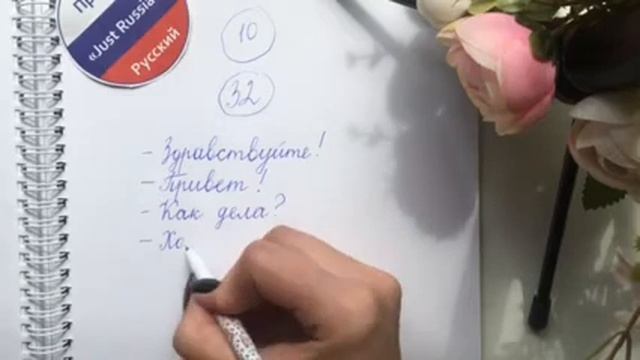 пр
«Just Russia
Русский
10
32
- Здравствуйте!
- Привет!
- Как дела?
- Хо